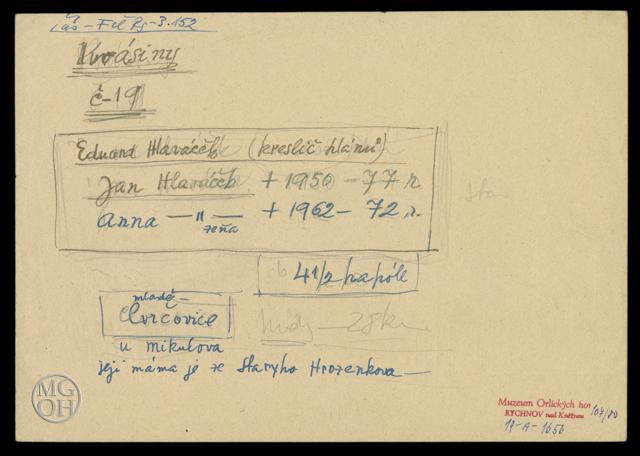 Lás - Fil Rg - 3.152
Kvásiny
č-19
Eduard Hlaváček (kreslič plánů)
Jan Hlaváček + 1950 - 77 r.
Anna — " — + 1962 - 72 r.
žena
41/2 napóle
mladé -
u mikulova
její máma je ze Staryho Hrozenkova —
MG
OH
Muzeum Orlických hor
RYCHNOV nad Kněžnou
104/80
17-A-1656